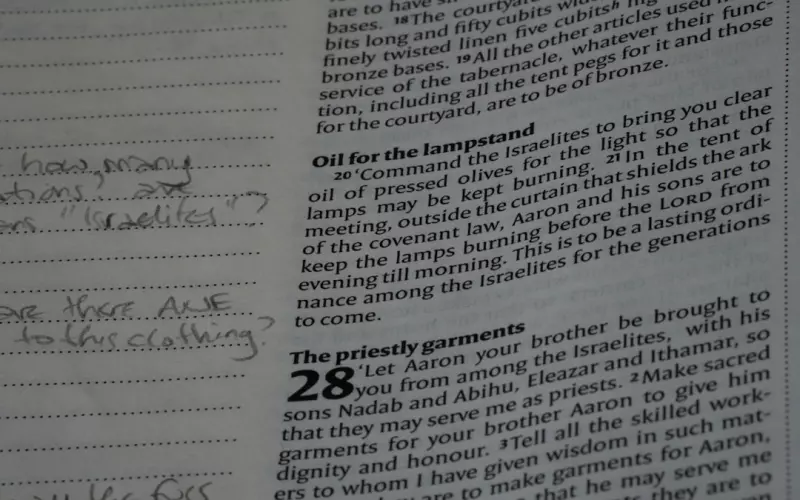 how many
ations, are
ans "Israelites"?
are there ANE
to this clothing?
are to have
bases. 18The courtyard
bits long and fifty cubits wide
finely twisted linen five cubitsh hig
bronze bases. 19All the other articles used in
service of the tabernacle, whatever their func-
tion, including all the tent pegs for it and those
for the courtyard, are to be of bronze.
Oil for the lampstand
20'Command the Israelites to bring you clear
oil of pressed olives for the light so that the
lamps may be kept burning. 21In the tent of
meeting, outside the curtain that shields the ark
of the covenant law, Aaron and his sons are to
keep the lamps burning before the LORD from
evening till morning. This is to be a lasting ordi-
nance among the Israelites for the generations
to come.
The priestly garments
28 'Let Aaron your brother be brought to
you from among the Israelites, with his
sons Nadab and Abihu, Eleazar and Ithamar, so
that they may serve me as priests. 2Make sacred
garments for your brother Aaron to give him
dignity and honour. 3Tell all the skilled work-
ers to whom I have given wisdom in such mat-
are to make garments for Aaron,
that he may serve me
they are to